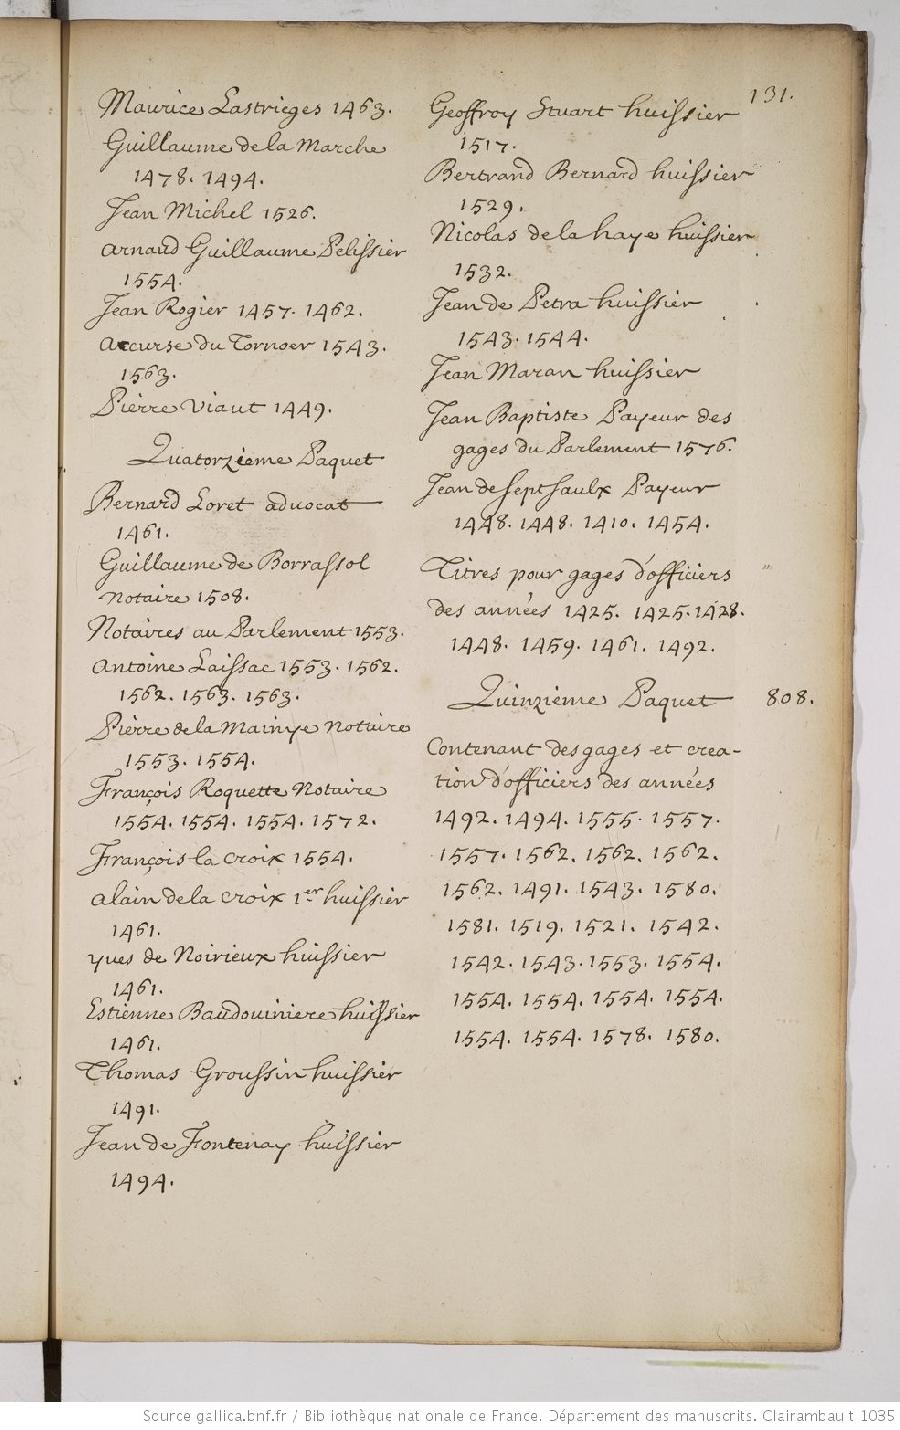 131.
Maurice Lastrieges 1463.
Guillaume de la Marche
1478. 1494.
Jean Michel 1526.
arnaud Guillaume Pelissier
1554.
Jean Rogier 1457. 1462.
accurse du Tornoer 1543.
1563.
Pierre Viaut 1449.
Quatorzieme Paquet
Bernard Loret advocat
1461.
Guillaume de Borrassol
notaire 1508.
Notaires au Parlement 1553.
antoine Laissac 1553. 1562.
1562. 1563. 1563.
Pierre de la Mainye notaire
1553. 1554.
François Roquette Notaire
1554. 1554. 1554. 1572.
François la croix 1554.
alain de la croix 1er huissier
1461.
yves de Noirieux huissier
1461.
Estienne Baudouiniere huissier
1461.
Thomas Groussin huissier
1491.
Jean de Fontenay huissier
1494.
Geoffroy Stuart huissier
1517.
Bertrand Bernard huissier
1529.
Nicolas de la haye huissier
1532.
Jean de Petra huissier
1543. 1544.
Jean Maran huissier
Jean Baptiste Payeur des
gages du Parlement 1576.
Jean de septsaulx Payeur
1448. 1448. 1410. 1454.
Titres pour gages d'officiers
des années 1425. 1425. 1428.
1448. 1459. 1461. 1492.
Quinzieme Paquet 808.
Contenant des gages et crea-
tion d'officiers des années
1492. 1494. 1555. 1557.
1557. 1562. 1562. 1562.
1562. 1491. 1543. 1580.
1581. 1519. 1521. 1542.
1542. 1543. 1553. 1554.
1554. 1554. 1554. 1554.
1554. 1554. 1578. 1580.
Source gallica.bnf.fr / Bibliothèque nationale de France. Département des manuscrits. Clairambault 1035